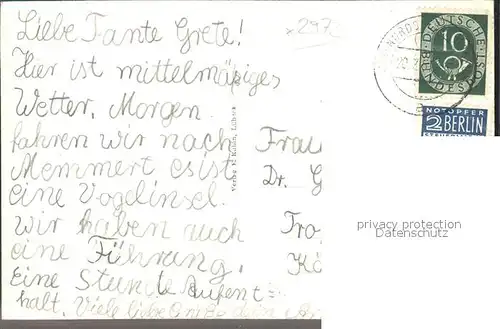 Liebe Tante Grete!
Hier ist mittelmäßiges
Wetter. Morgen
fahren wir nach
Memmert es ist
eine Vogelinsel.
Wir haben auch
eine Führung.
Eine Stunde Aufent=
halt. Viele liebe
Verlag
Frau
Dr. G
Tro
Kö
10
DEUTSCHE BUNDESPOST
NOTOPFER
2 BERLIN
STEUERMARKE
privacy protection
Datenschutz